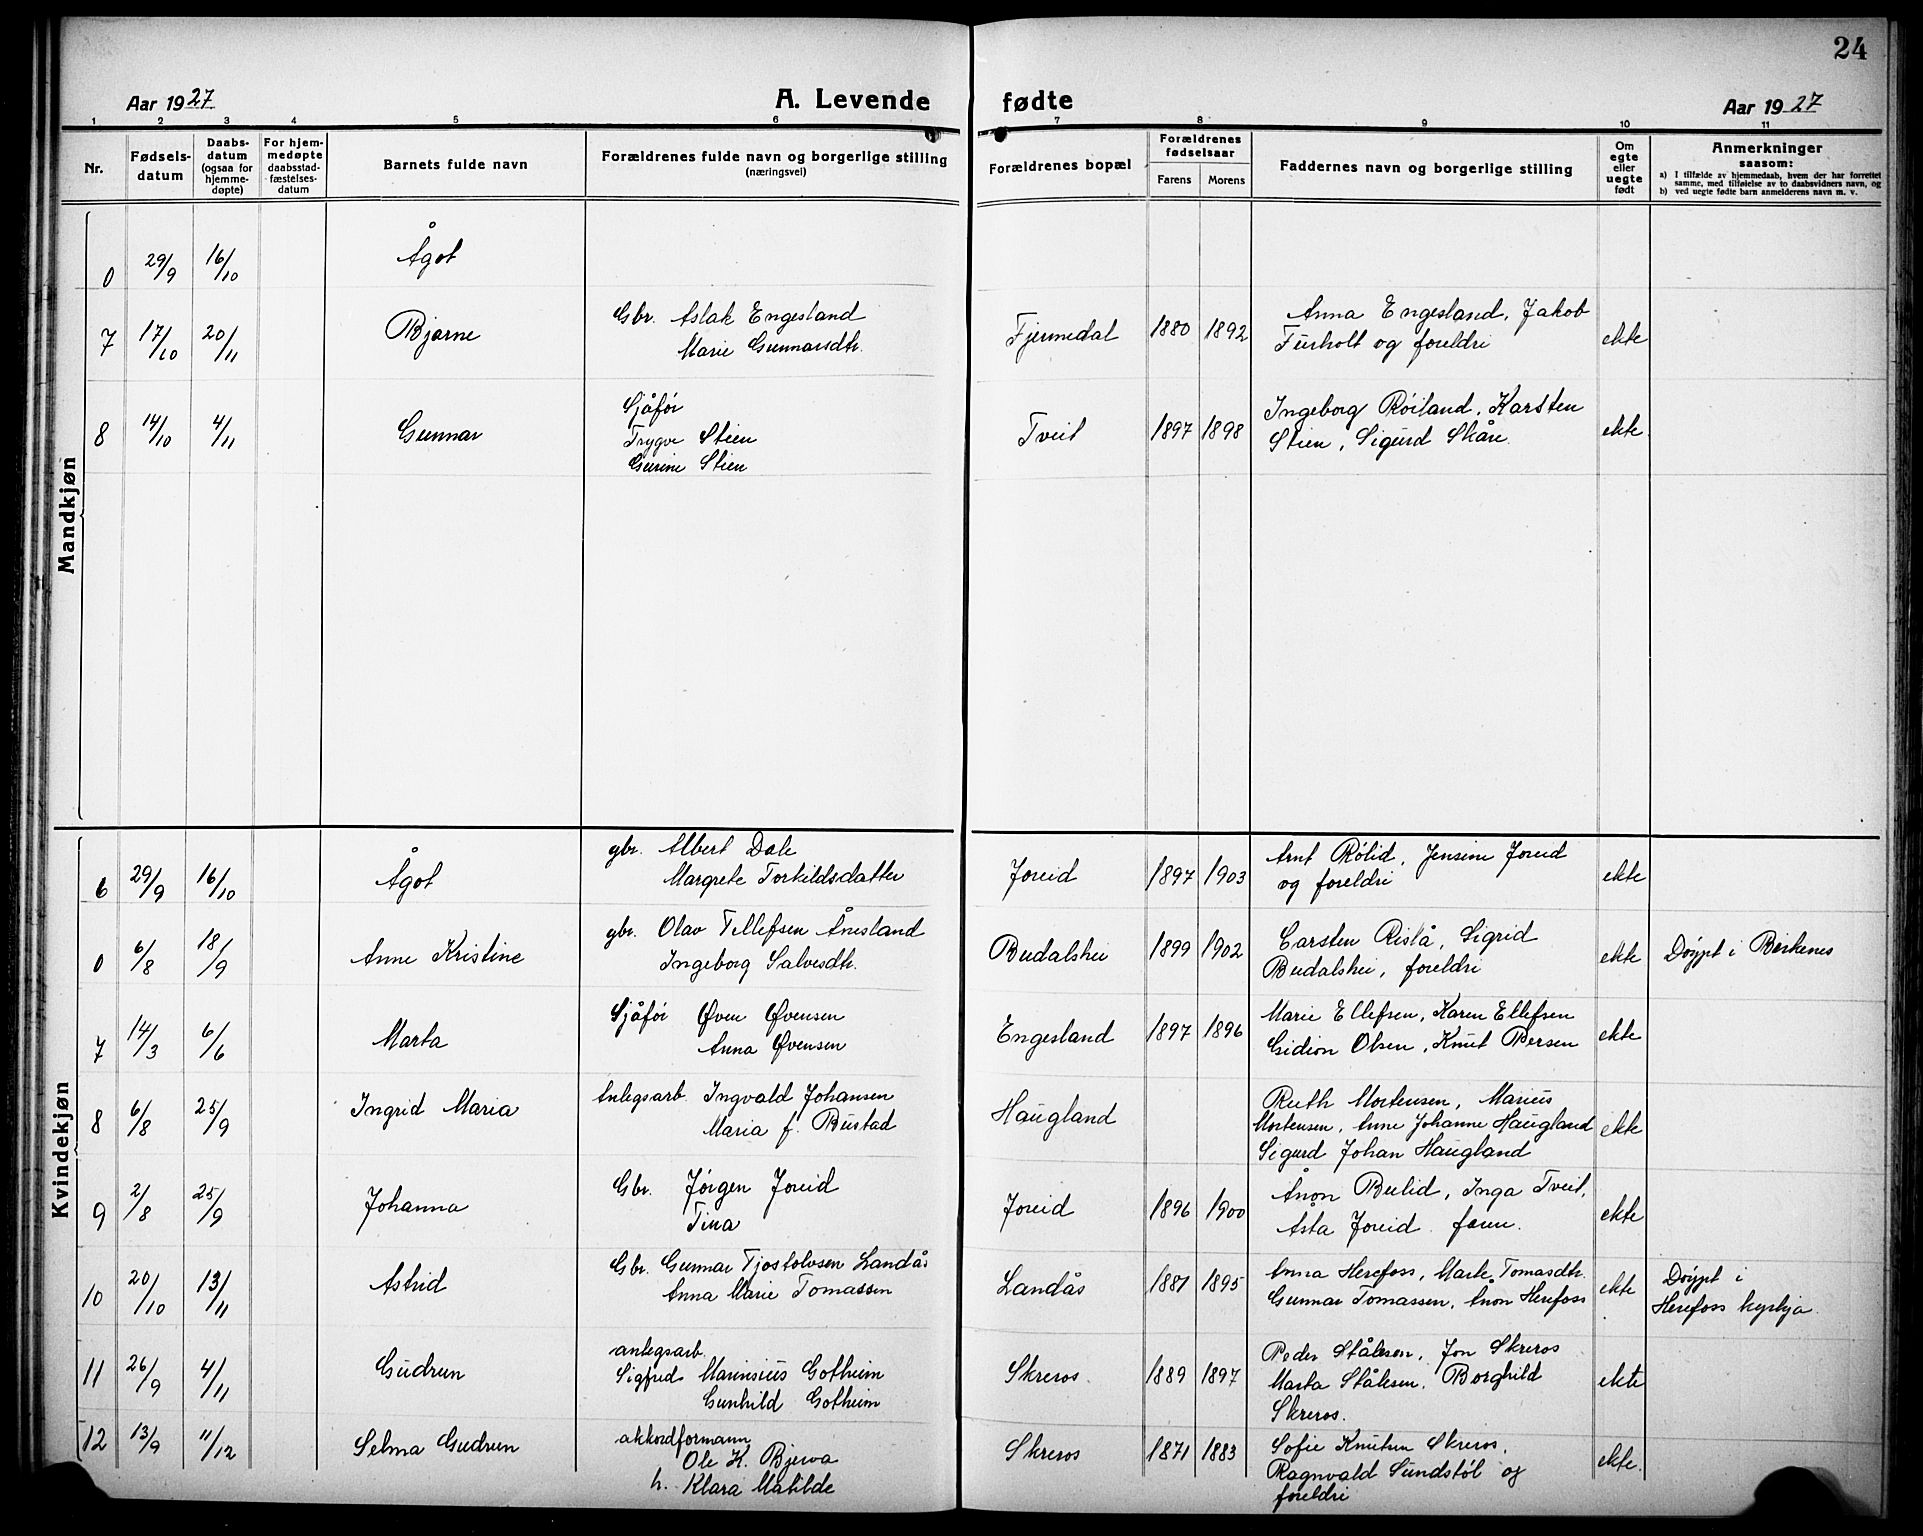 24
Aar 1927 A. Levende fødte Aar 1927
1 2 3 4 5 6 7 8 9 10 11
Nr. Fødsels-datum Daabs-datum (ogsaa for hjemme-døpte) For hjem-medøpte daabsstad-fæstelses-datum Barnets fulde navn Forældrenes fulde navn og borgerlige stilling (næringsvei) Forældrenes bopæl Forældrenes fødselsaar Farens Morens Faddernes navn og borgerlige stilling Om egte eller uegte født Anmerkninger saasom:
a) I tilfælde av hjemmedaab, hvem der har forrettet samme, med tilføielse av to daabsvidners navn, og
b) ved uegte fødte barn anmelderens navn m. v.
Mandkjøn
0 29/9 16/10 Ågot
7 17/10 20/11 Bjarne Gbr. Aslak Engesland
Marie Gunnarsdtr. Fjermedal 1880 1892 Anna Engesland, Jakob
Furholt og foreldri ekte
8 14/10 4/11 Gunnar Sjåfør
Trygve Stien
Gurine Stien Tveit 1897 1898 Ingeborg Røiland, Karsten
Stien, Sigurd Skåre. ekte.
Kvindekjøn
6 29/9 16/10 Ågot gbr. Albert Dale
Margrete Torkildsdatter Joreid 1897 1903 Arnt Rølid, Jensine Joreid
og foreldri ekte
0 6/8 18/9 Anne Kristine gbr. Olav Tellefsen Ånesland
Ingeborg Salvesdtr. Budalshei 1899 1902 Carsten Rislå, Sigrid
Budalshei, foreldri ekte Døypt i Birkenes
7 14/3 6/6 Marta Sjåfør Øven Øvensen
Anna Øvensen Engesland 1897 1896 Marie Ellefsen, Karen Ellefsen
Gidion Olsen, Knut Bersen ekte
8 6/8 25/9 Ingrid Maria Anlegsarb. Ingvald Johansen
Maria f. Bustad Haugland Ruth Mortensen, Marius
Mortensen, Anne Johanne Haugland
Sigurd Johan Haugland ekte
9 2/8 25/9 Johanna Gbr. Jørgen Joreid
Tina Joreid 1896 1900 Ånon Bulid, Inga Tveit,
Asta Joreid. ekte
10 20/10 13/11 Astrid Gbr. Gunnar Tjostolvsen Landås
Anna Marie Tomassen Landås 1881 1895 Anna Herefoss, Marte Tomasdtr.
Gunnar Tomassen, Ånon Herefoss ekte Døypt i
Herefoss kyrkja.
11 26/9 4/11 Gudrun anlegsarb.
Sigfred Marinsius Gotheim
Gunhild Gotheim Skreros. 1889 1897 Peder Stålesen, Jon Skreros
Marta Stålesen, Borghild
Skreros. ekte
12 13/9 11/12 Selma Gudrun akkordformann
Ole K. Bjerva
h. Klara Matilde Skreros 1871 1883 Sofie Knutsen Skreros,
Ragnvald Sundstøl og
foreldri ekte.